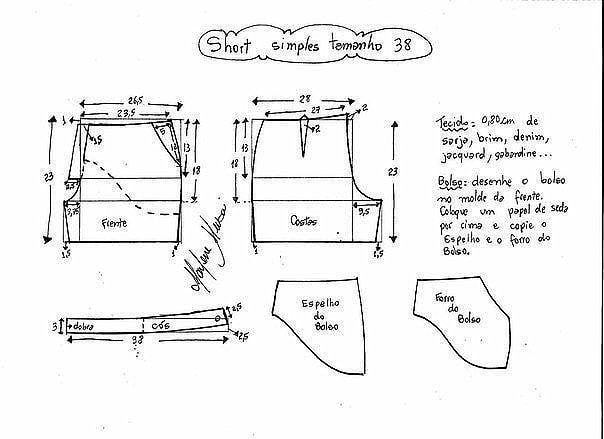 Short simples tamanho 38
26,5
23,5
1
15
5
13
13
18
23
2,5
3,75
Frente
1,5
1
28
27
2
2
13
18
23
9,5
Costas
1
1,5
Tecido: 0,80cm de
sarja, brim, denim,
jacquard, gabardine...
Bolso: desenhe o bolso
no molde da frente.
Coloque um papel de seda
por cima e copie o
Espelho e o forro do
Bolso.
3
dobra
cós
2,5
2,5
38
Espelho
do
Bolso
Forro
do
Bolso